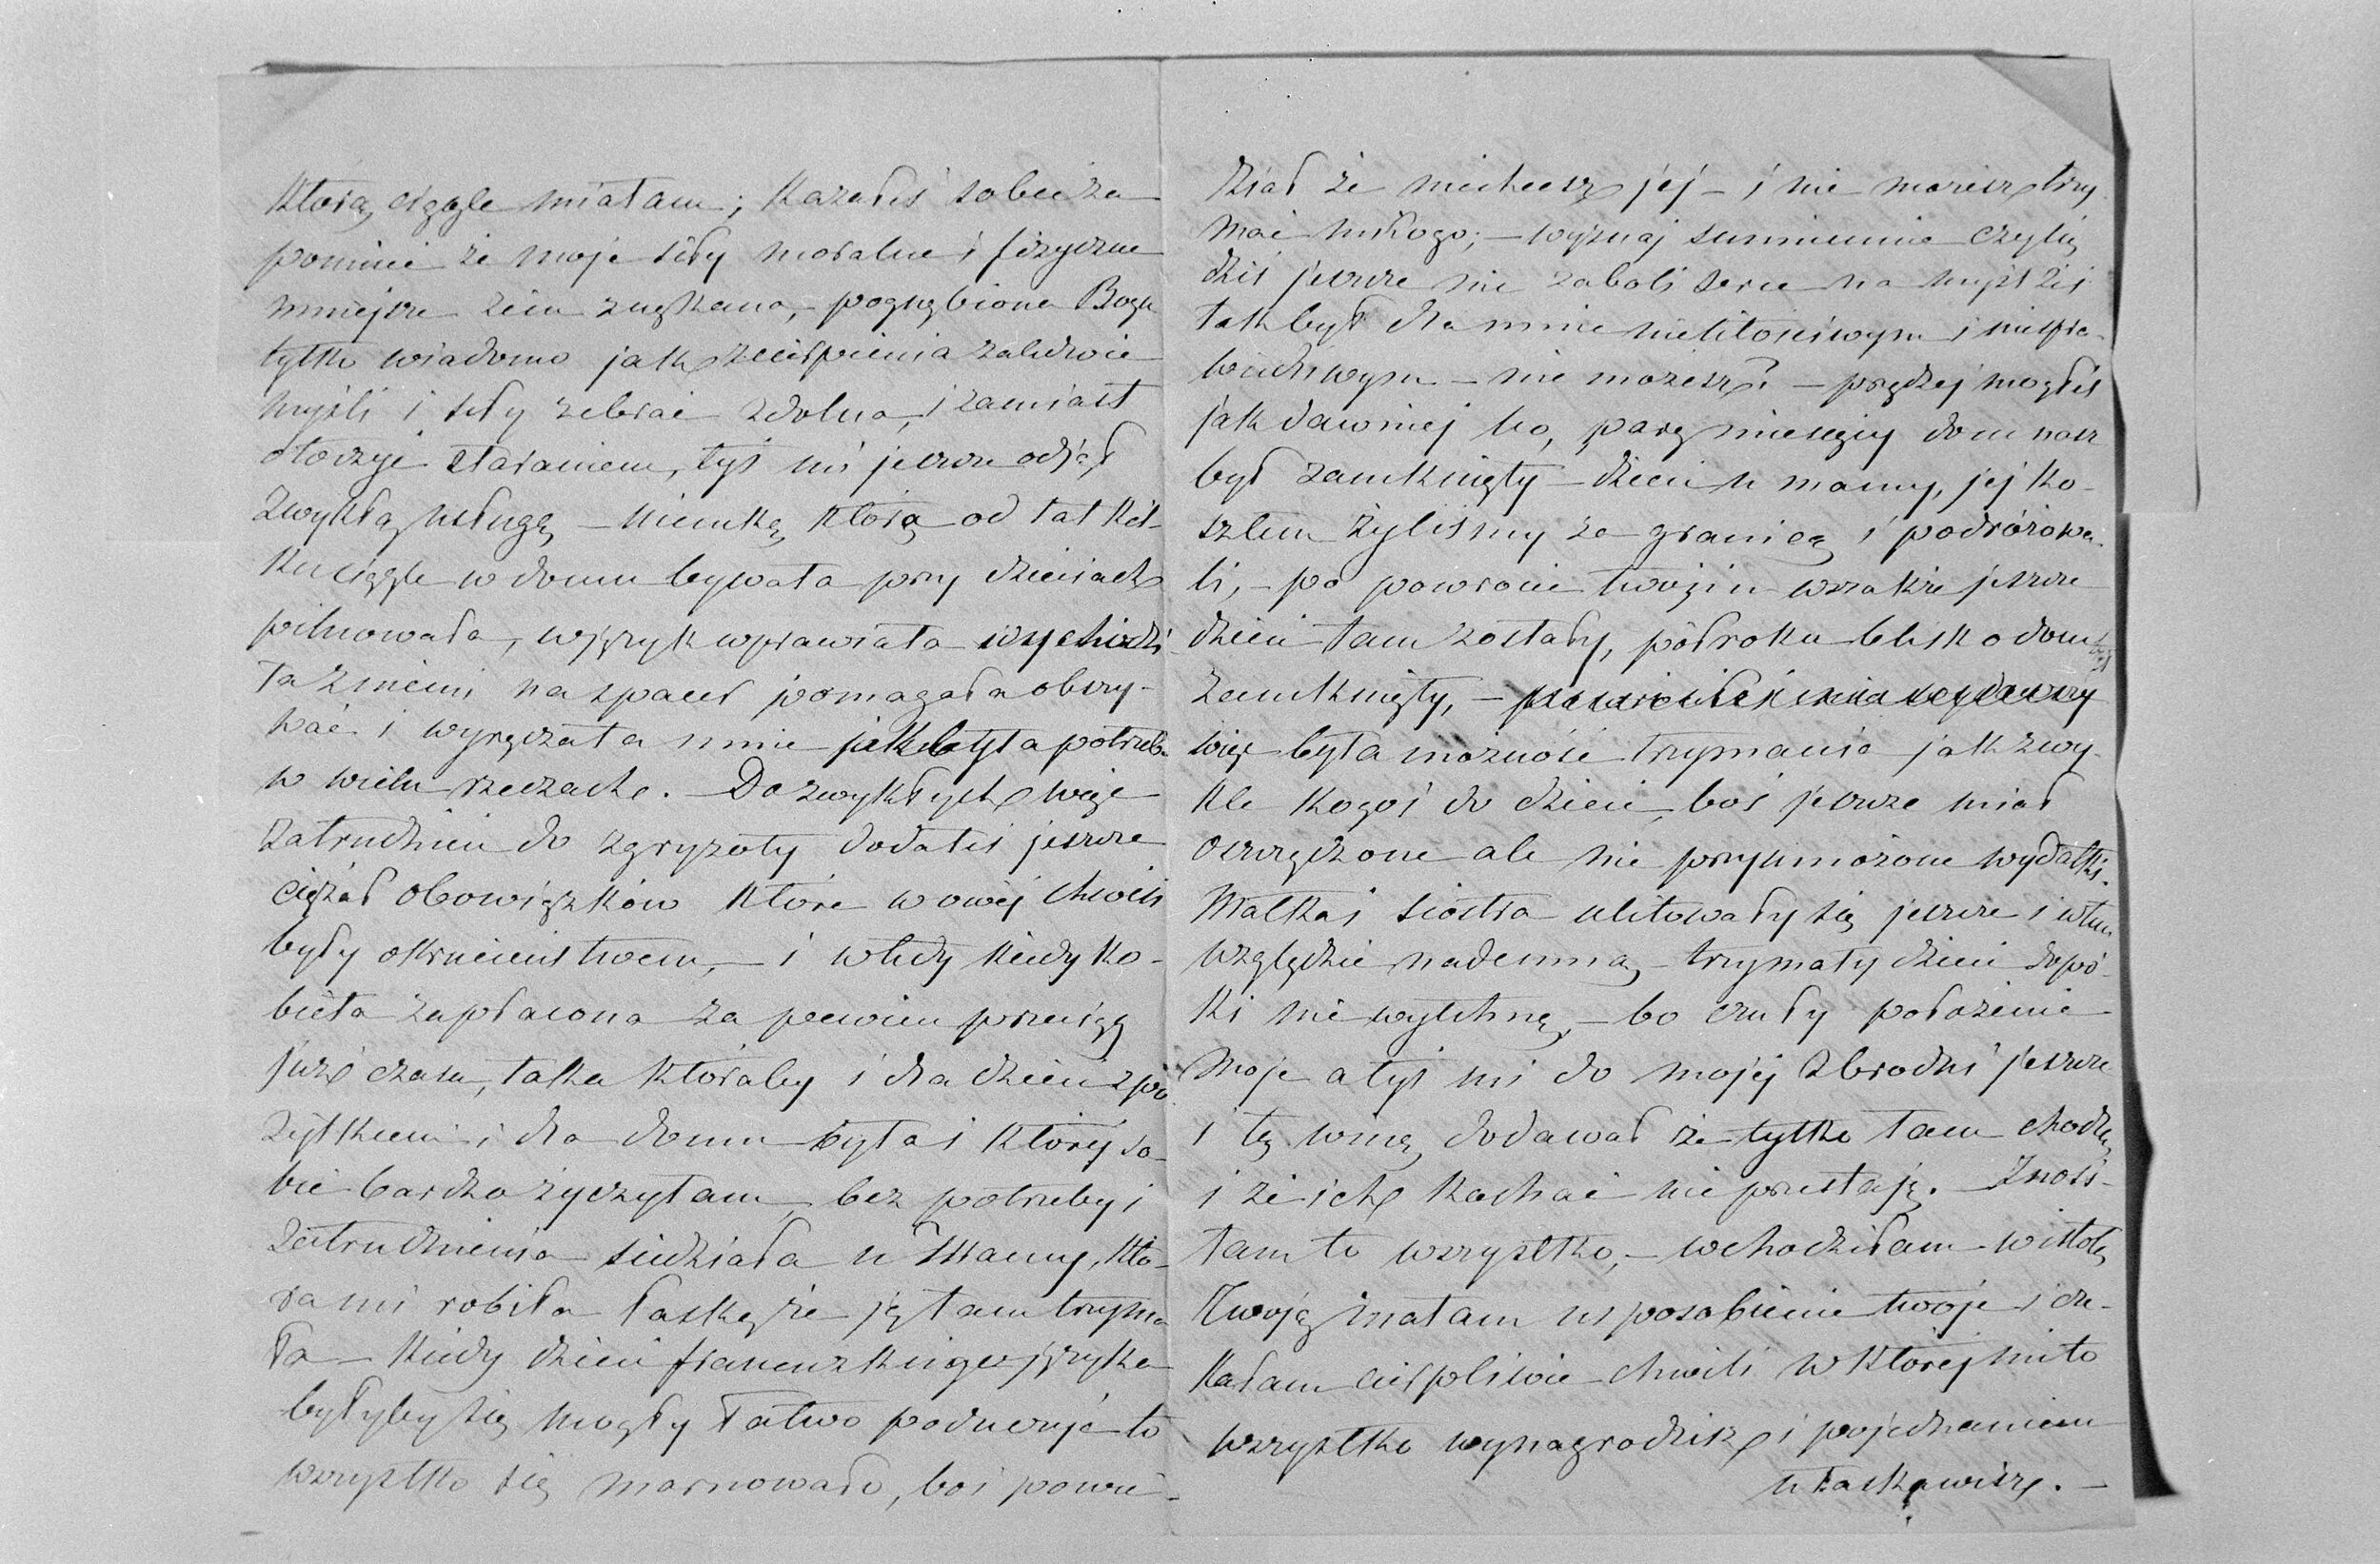 którą ciągle miałam; kazałeś sobie za-
pomnieć że moje siły moralne i fizyczne
mniejsze żem znękana, - pognębiona Bogu
tylko wiadomo jak z cierpienia zaledwie
myśli i siły zebrać zdolna, i zamiast
otoczyć staraniem, tyś mi jeszcze odjął
zwykłą usługę - niemkę którą od lat kil-
ku ciągle w domu bywała przy dzieciach
pilnowała, w język wprawiała wychodzi-
ła z niemi na spacer pomagała obszy-
wać i wyręczała mnie jak była potrzeba
w wielu rzeczach. - Do zwykłych więc
zatrudnień do zgryzoty dodałeś jeszcze
ciężar obowiązków które w owéj chwili
były okrucieństwem, - i wtedy kiedy ko-
bieta zapłacona za pewien przeciąg
już czasu, taka któraby i dla dzieci z po-
żytkiem i dla domu była i któréj so-
bie bardzo życzyłam bez potrzeby i
zatrudnienia siedziała u Mamy, któ-
ra mi robiła łaskę że ją tam trzyma
ła - kiedy dzieci francuzkiego języka
byłyby się mogły łatwo poduczyć to
wszystko się marnowało, boś powie-
dział że niechcesz jéj - i nie możesz trzy-
mać nikogo; - wyznaj sumiennie czyliż
dziś jeszcze nie zaboli serce na myśl żeś
tak był dla mnie nielitościwym i niespra-
wiedliwym - nie możesz? - prędzej mogłeś
jak dawniej bo, parę miesięcy dom nasz
był zamknięty - dzieci u mamy, jej ko-
sztem żyliśmy za granicą i podróżowa-
li, - po powrocie twoim wszakże jeszcze
dzieci tam zostały, pół roku blisko dom był
zamknięty, -
więc była możność trzymania jak zwy-
kle kogoś do dzieci boś jeszcze miał
oszczędzone ale nie przymnożone wydatki.
Matka i siostra ulitowały się jeszcze i w tem
względzie nademną - trzymały dzieci dopó-
ki nie wytchnę, - bo czuły położenie
moje a tyś mi do mojéj zbrodni jeszcze
i tę winę dodawał że tylko tam chodzę
i że ich kochać nie przestaję. - Znosi-
łam to wszystko, - wchodziłam w istotę
Twoją znałam usposobienie twoje i cze-
kałam cierpliwie chwili w któréj mi to
wszystko wynagrodzisz i pojednaniem
ułaskawisz. -